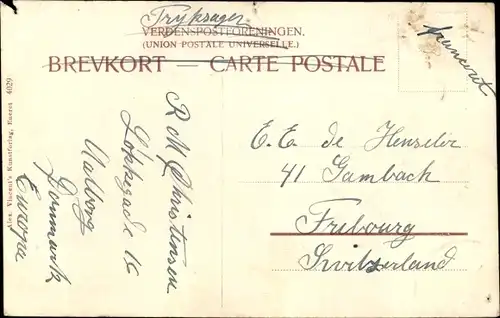 Tryksager
VERDENSPOSTFORENINGEN.
(UNION POSTALE UNIVERSELLE.)
BREVKORT — CARTE POSTALE
Alex. Vincent's Kunstforlag, Eneret 4029
R M Christensen
Løkkegade 16
Aalborg
Danmark
Europa
E. E. de Henseler
41 Gambach
Fribourg
Switzerland